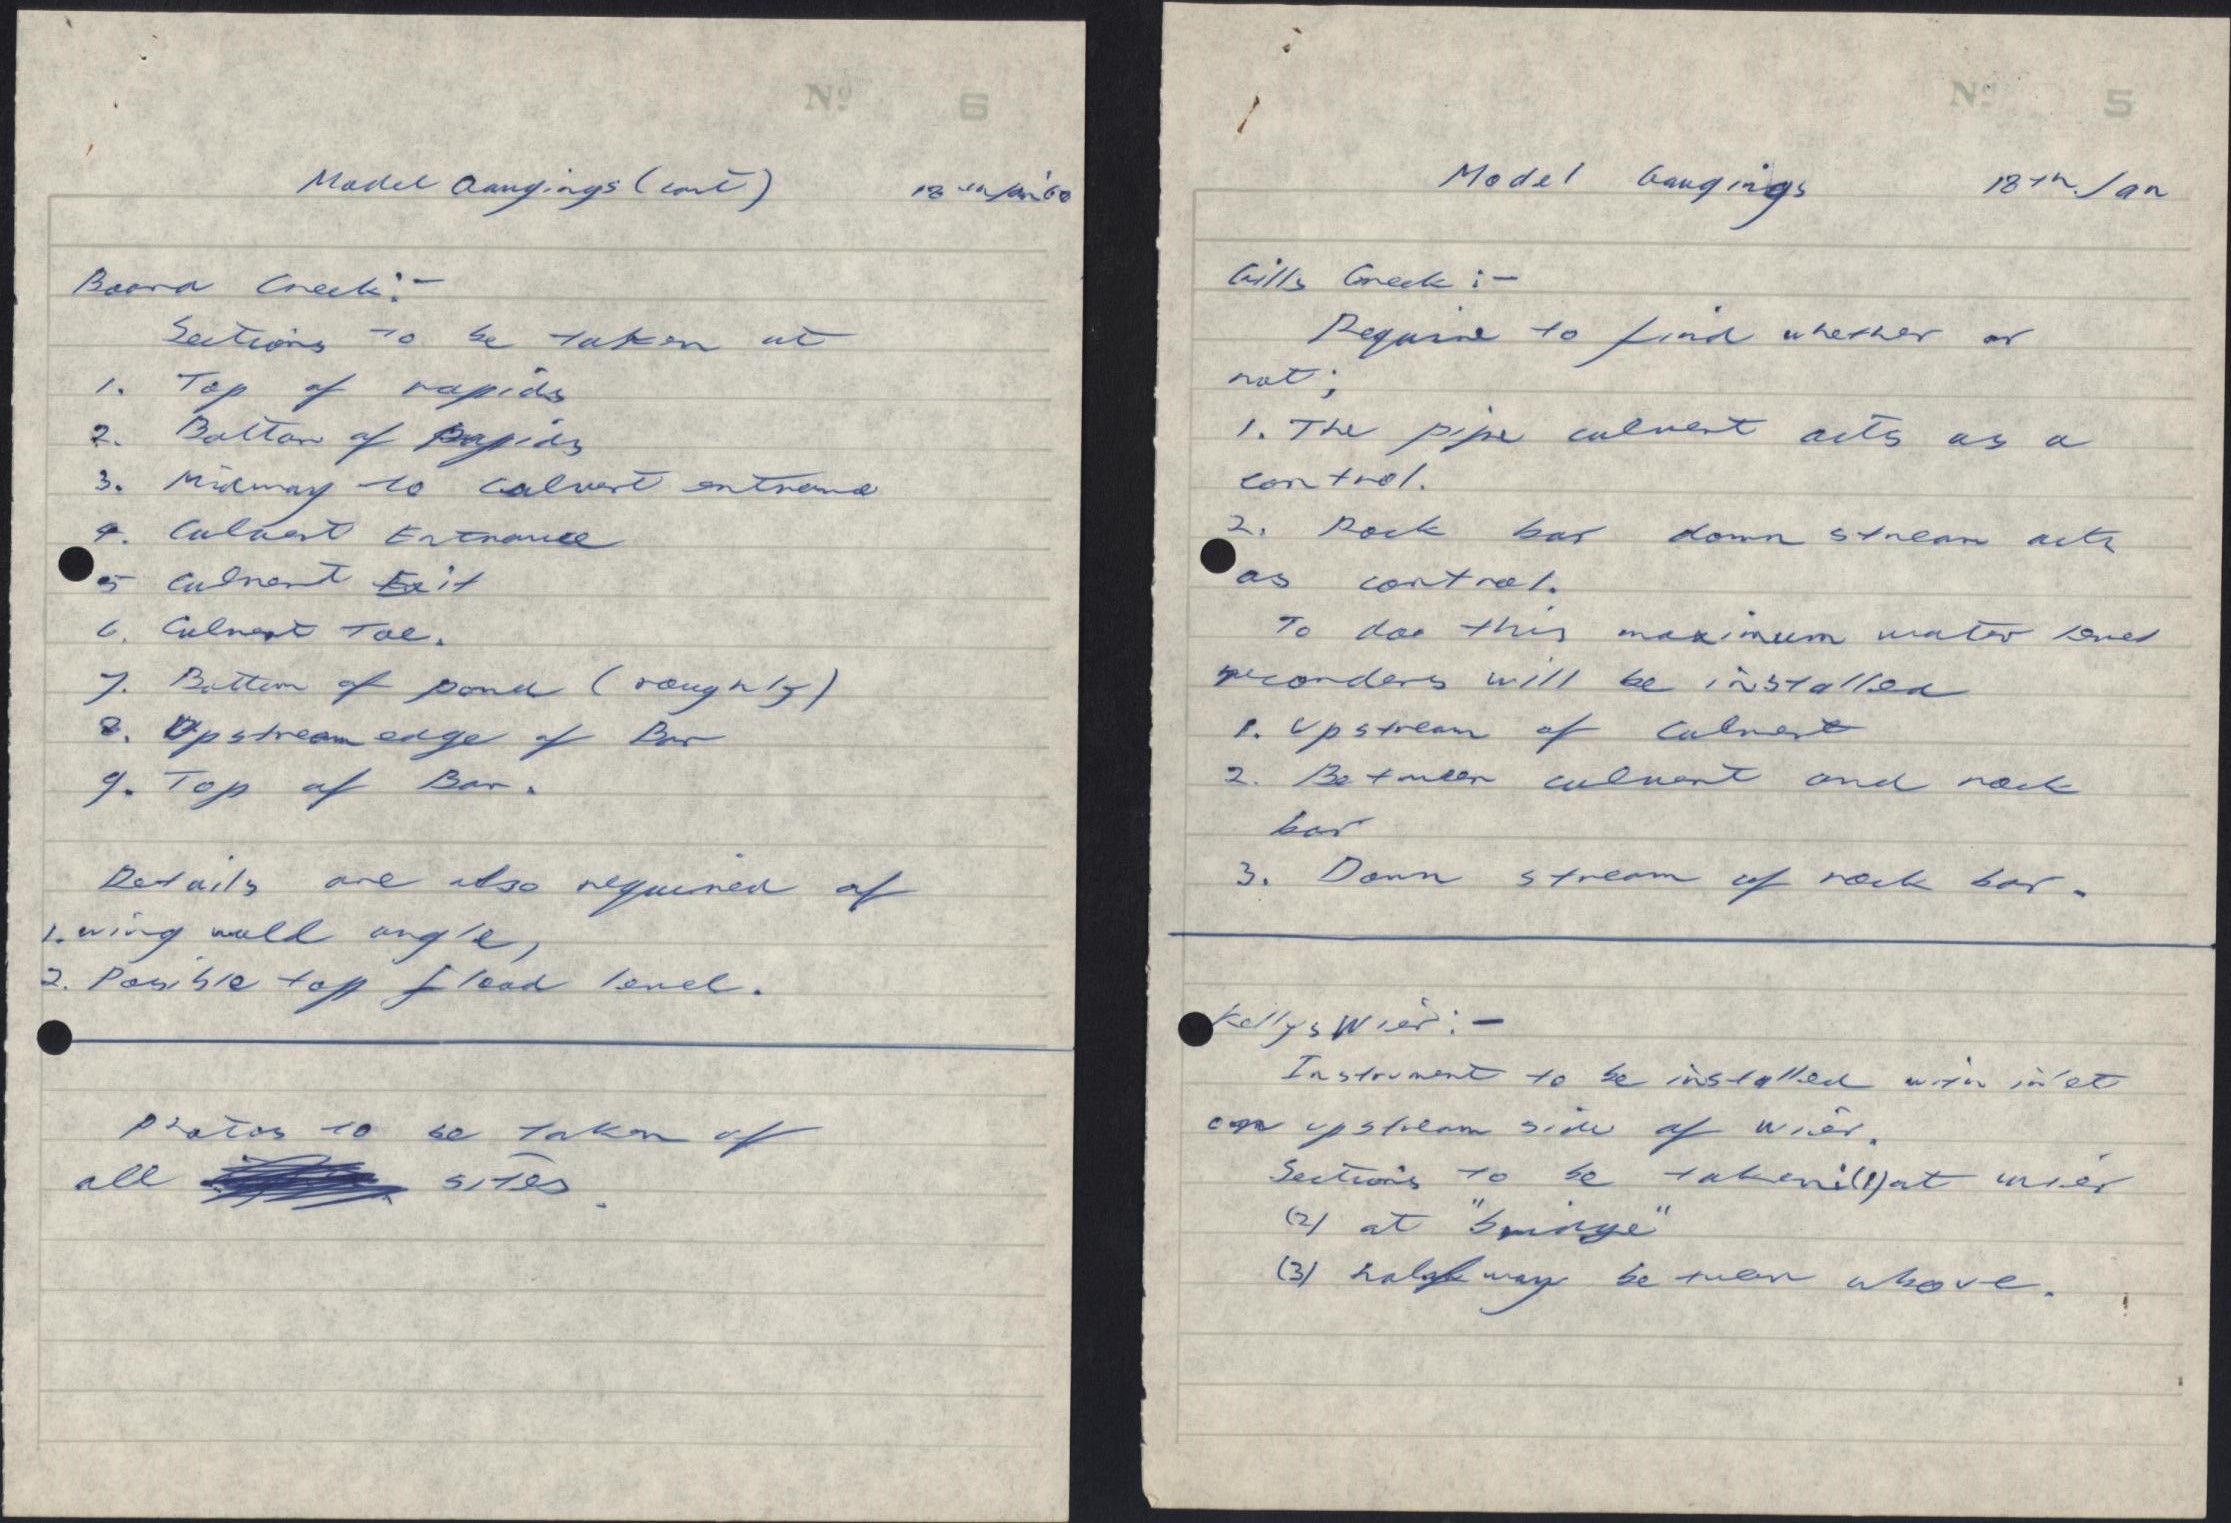 Nº 6
Model Gaugings (cont) 18th/Jan'60
Creek:-
Sections to be taken at
1. Top of rapids
2. Bottom of Rapids
3. Midway to culvert entrance
4. Culvert Entrance
5 Culvert Exit
6. Culvert Toe.
7. Bottom of pond (roughly)
8. Upstream edge of Bar
9. Top of Bar.
Details are also required of
1. wing wall angle,
2. Posible top flood level.
Photos to be taken of
all sites.
Nº 5
Model Gaugings 18th Jan
Gills Creek:-
Require to find whether or
not;
1. The pipe culvert acts as a
control.
2. Rock bar down stream acts
as control.
To doo this maximum water level
recorders will be installed
1. Upstream of Culvert
2. Between culvert and rock
bar
3. Down stream of rock bar.
Kellys Wier:-
Instrument to be installed with inlet
on upstream side of Wier.
Sections to be taken:(1) at wier
(2) at "bridge"
(3) halfway between above.